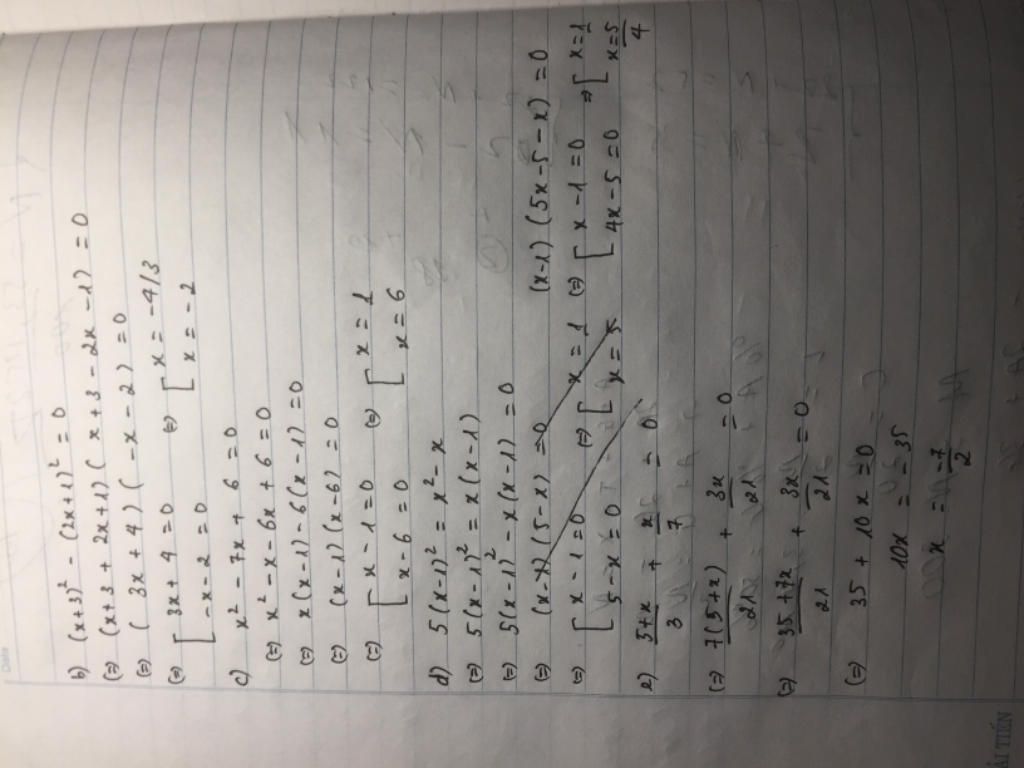 Date
b) (x+3)² - (2x+1)² = 0
(=) (x+3 + 2x+1)(x+3 - 2x -1) = 0
(=) (3x+4)(-x-2) = 0
(=) [ 3x+4 = 0 (=) [ x = -4/3
-x-2 = 0 x = -2
c) x² - 7x + 6 = 0
(=) x² - x - 6x + 6 = 0
(=) x(x-1) - 6(x-1) = 0
(=) (x-1)(x-6) = 0
(=) [ x-1 = 0 (=) [ x = 1
x-6 = 0 x = 6
d) 5(x-1)² = x² - x
(=) 5(x-1)² = x(x-1)
(=) 5(x-1)² - x(x-1) = 0
(=) (x-1)(5-x) = 0 (x-1)(5x-5-x) = 0
(=) [ x-1 = 0 (=) [ x = 1 (=) [ x-1 = 0 => [ x = 1
5-x = 0 x = 5 4x-5 = 0 x = 5/4
e) (5+x)/3 + x/7 = 0
(=) 7(5+x)/21 + 3x/21 = 0
(=) (35+7x)/21 + 3x/21 = 0
(=) 35 + 10x = 0
10x = -35
x = -7/2
ẢI TIẾN